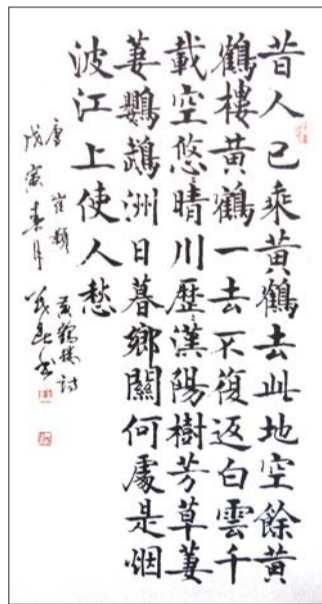 昔人已乘黃鶴去此地空餘黃
鶴樓黃鶴一去不復返白雲千
載空悠晴川歷漢陽樹芳草萋
萋鸚鵡洲日暮鄉關何處是烟
波江上使人愁
唐崔顥黃鶴樓詩
戊寅春月書